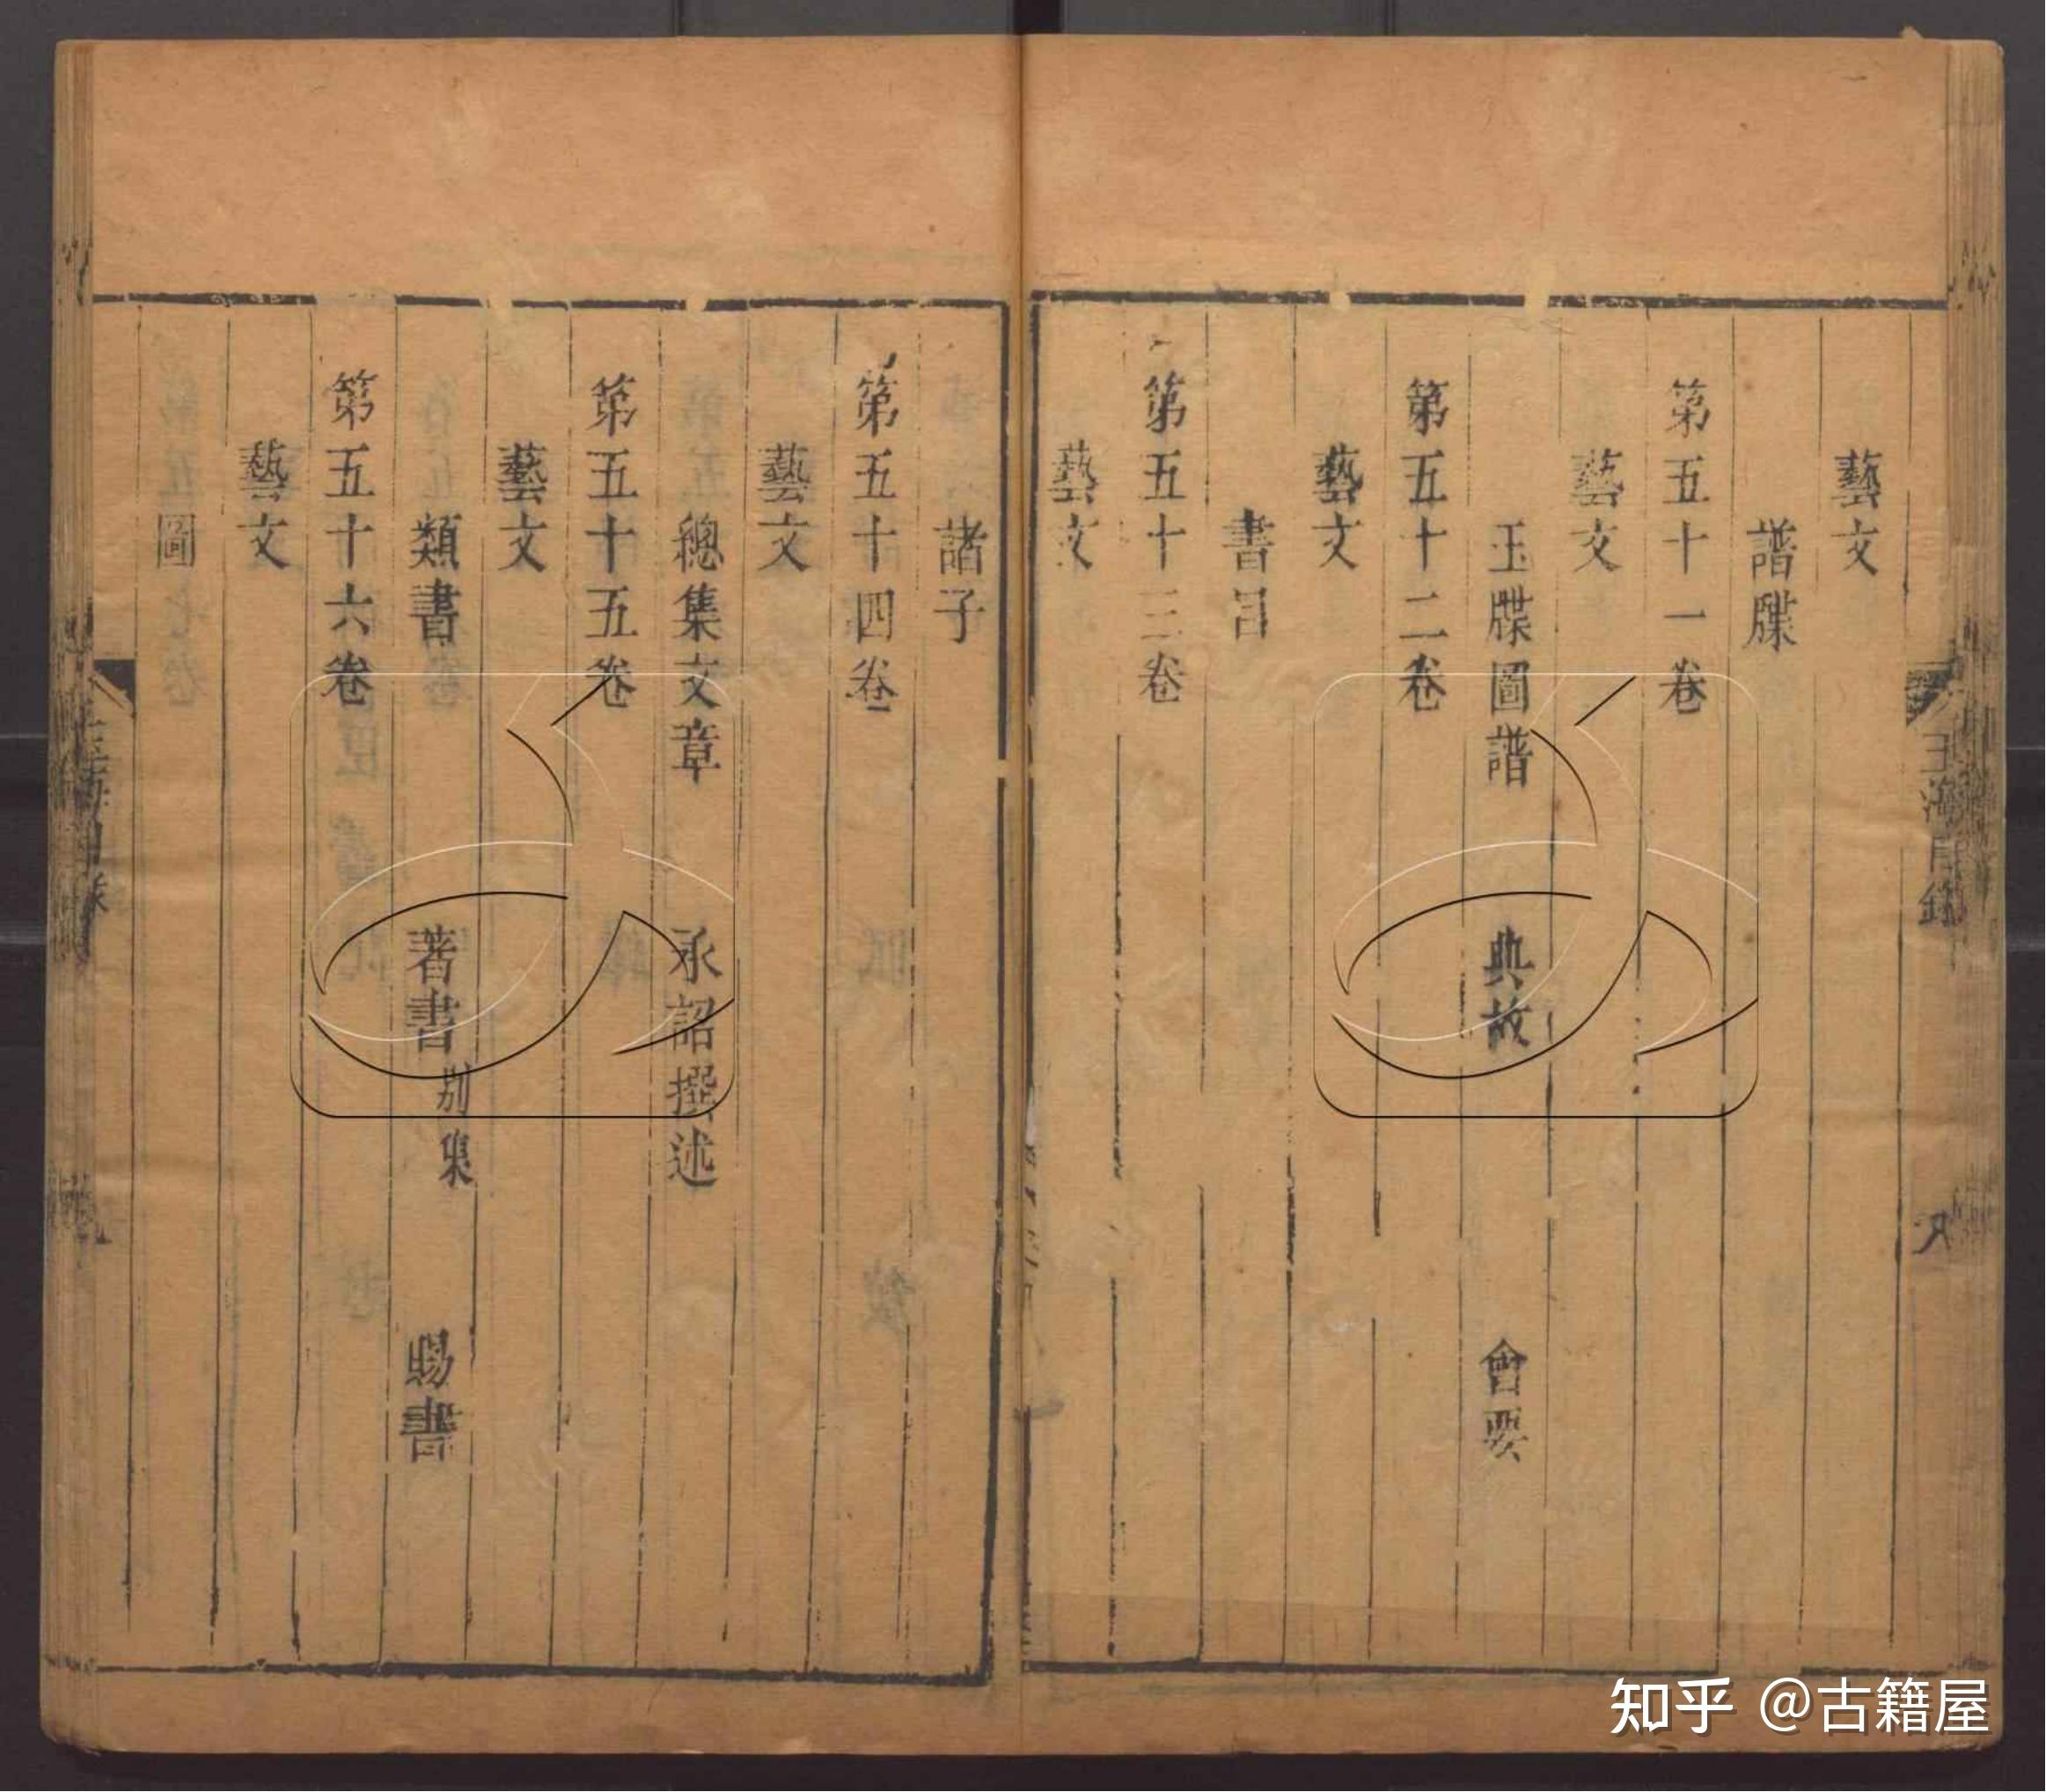 藝文
譜牒
第五十一卷
藝文
玉牒圖譜 典故 會要
第五十二卷
藝文
書目
第五十三卷
藝文
諸子
第五十四卷
藝文
總集文章 承詔撰述
第五十五卷
藝文
類書 著書別集 賜書
第五十六卷
藝文
圖
玉海目錄 八
知乎 @古籍屋